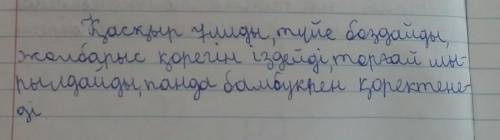 Қасқыр ұлиды, түйе боздайды,
жолбарыс қорегін іздейді, торғай шы-
рылдайды, панда бамбукпен қоректене-
ді.